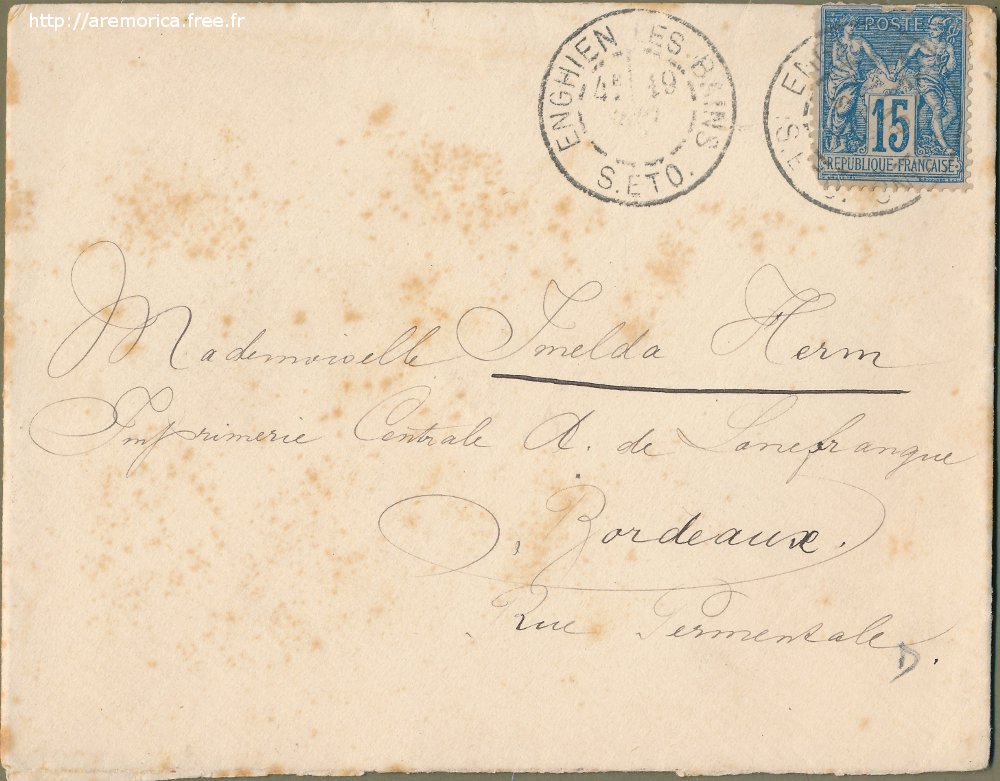 http://aremorica.free.fr
ENGHIEN LES-BAINS
4E 19
S. ET O.
POSTE
15
REPUBLIQUE FRANÇAISE
Mademoiselle Imelda Herm
Imprimerie Centrale A. de Lanefranque
Bordeaux.
Rue Permentale.
D